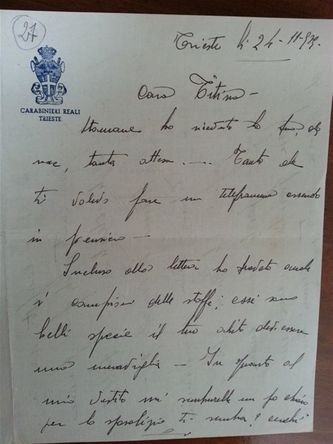 27
CARABINIERI REALI
TRIESTE
Trieste li 24-11-
Cara Titina -
Stamane ho ricevuto la
tanto Tanto che
ti volevo fare un telegramma essendo
in pensiero -
Incluso alla lettera ho trovato anche
i campioni delle stoffe; essi sono
belli specie il tuo abito dev'essere
una meraviglia - In quanto al
mio vestito mi sembrerebbe un po chiaro
per lo sposalizio ti sembra?